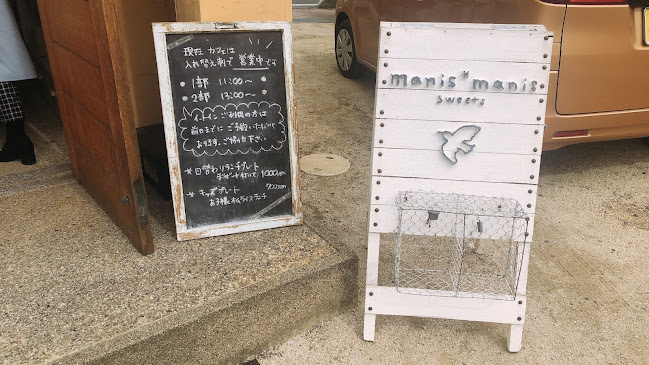 現在 カフェは
入れ替え制で 営業中です
1部 11:00〜
2部 13:00〜
ご利用の方は
前日までに ご予約いただいて
おります。ご了承下さい
* 日替わりランチプレート
(デザート付いて) 1000yen
* キッズプレート
700yen
お子様オムライスランチ
manis * manis
sweets